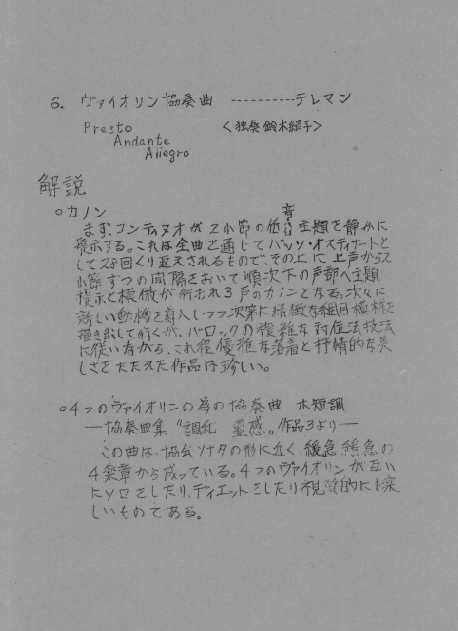 6. ヴァイオリン協奏曲 ----------テレマン
Presto 〈独奏 鈴木紹子〉
Andante
Allegro
解説
○カノン
まず、コンティヌオが2小節の低音主題を静かに
提示する。これは全曲を通じてバッソ・オスティナートと
して28回くり返えされるもので、その上に上声から2
小節ずつの間隔をおいて順次下の声部へ主題
提示と模倣が行われる3声のカノンとなる。次々に
新しい動機を導入しつつ次第に精緻な組目模様を
描き出して行くが、バロックの複雑な対位法技法
に従いながら、これ程優雅な落着と抒情的な美
しさをたたえた作品は珍しい。
○4つのヴァイオリンの為の協奏曲 ホ短調
―協奏曲集“調和の霊感”作品3より―
この曲は、協会ソナタの形に近く 緩急緩急の
4楽章から成っている。4つのヴァイオリンが互い
にソロをしたり、ディエットをしたり視覚的にも楽
しいものである。